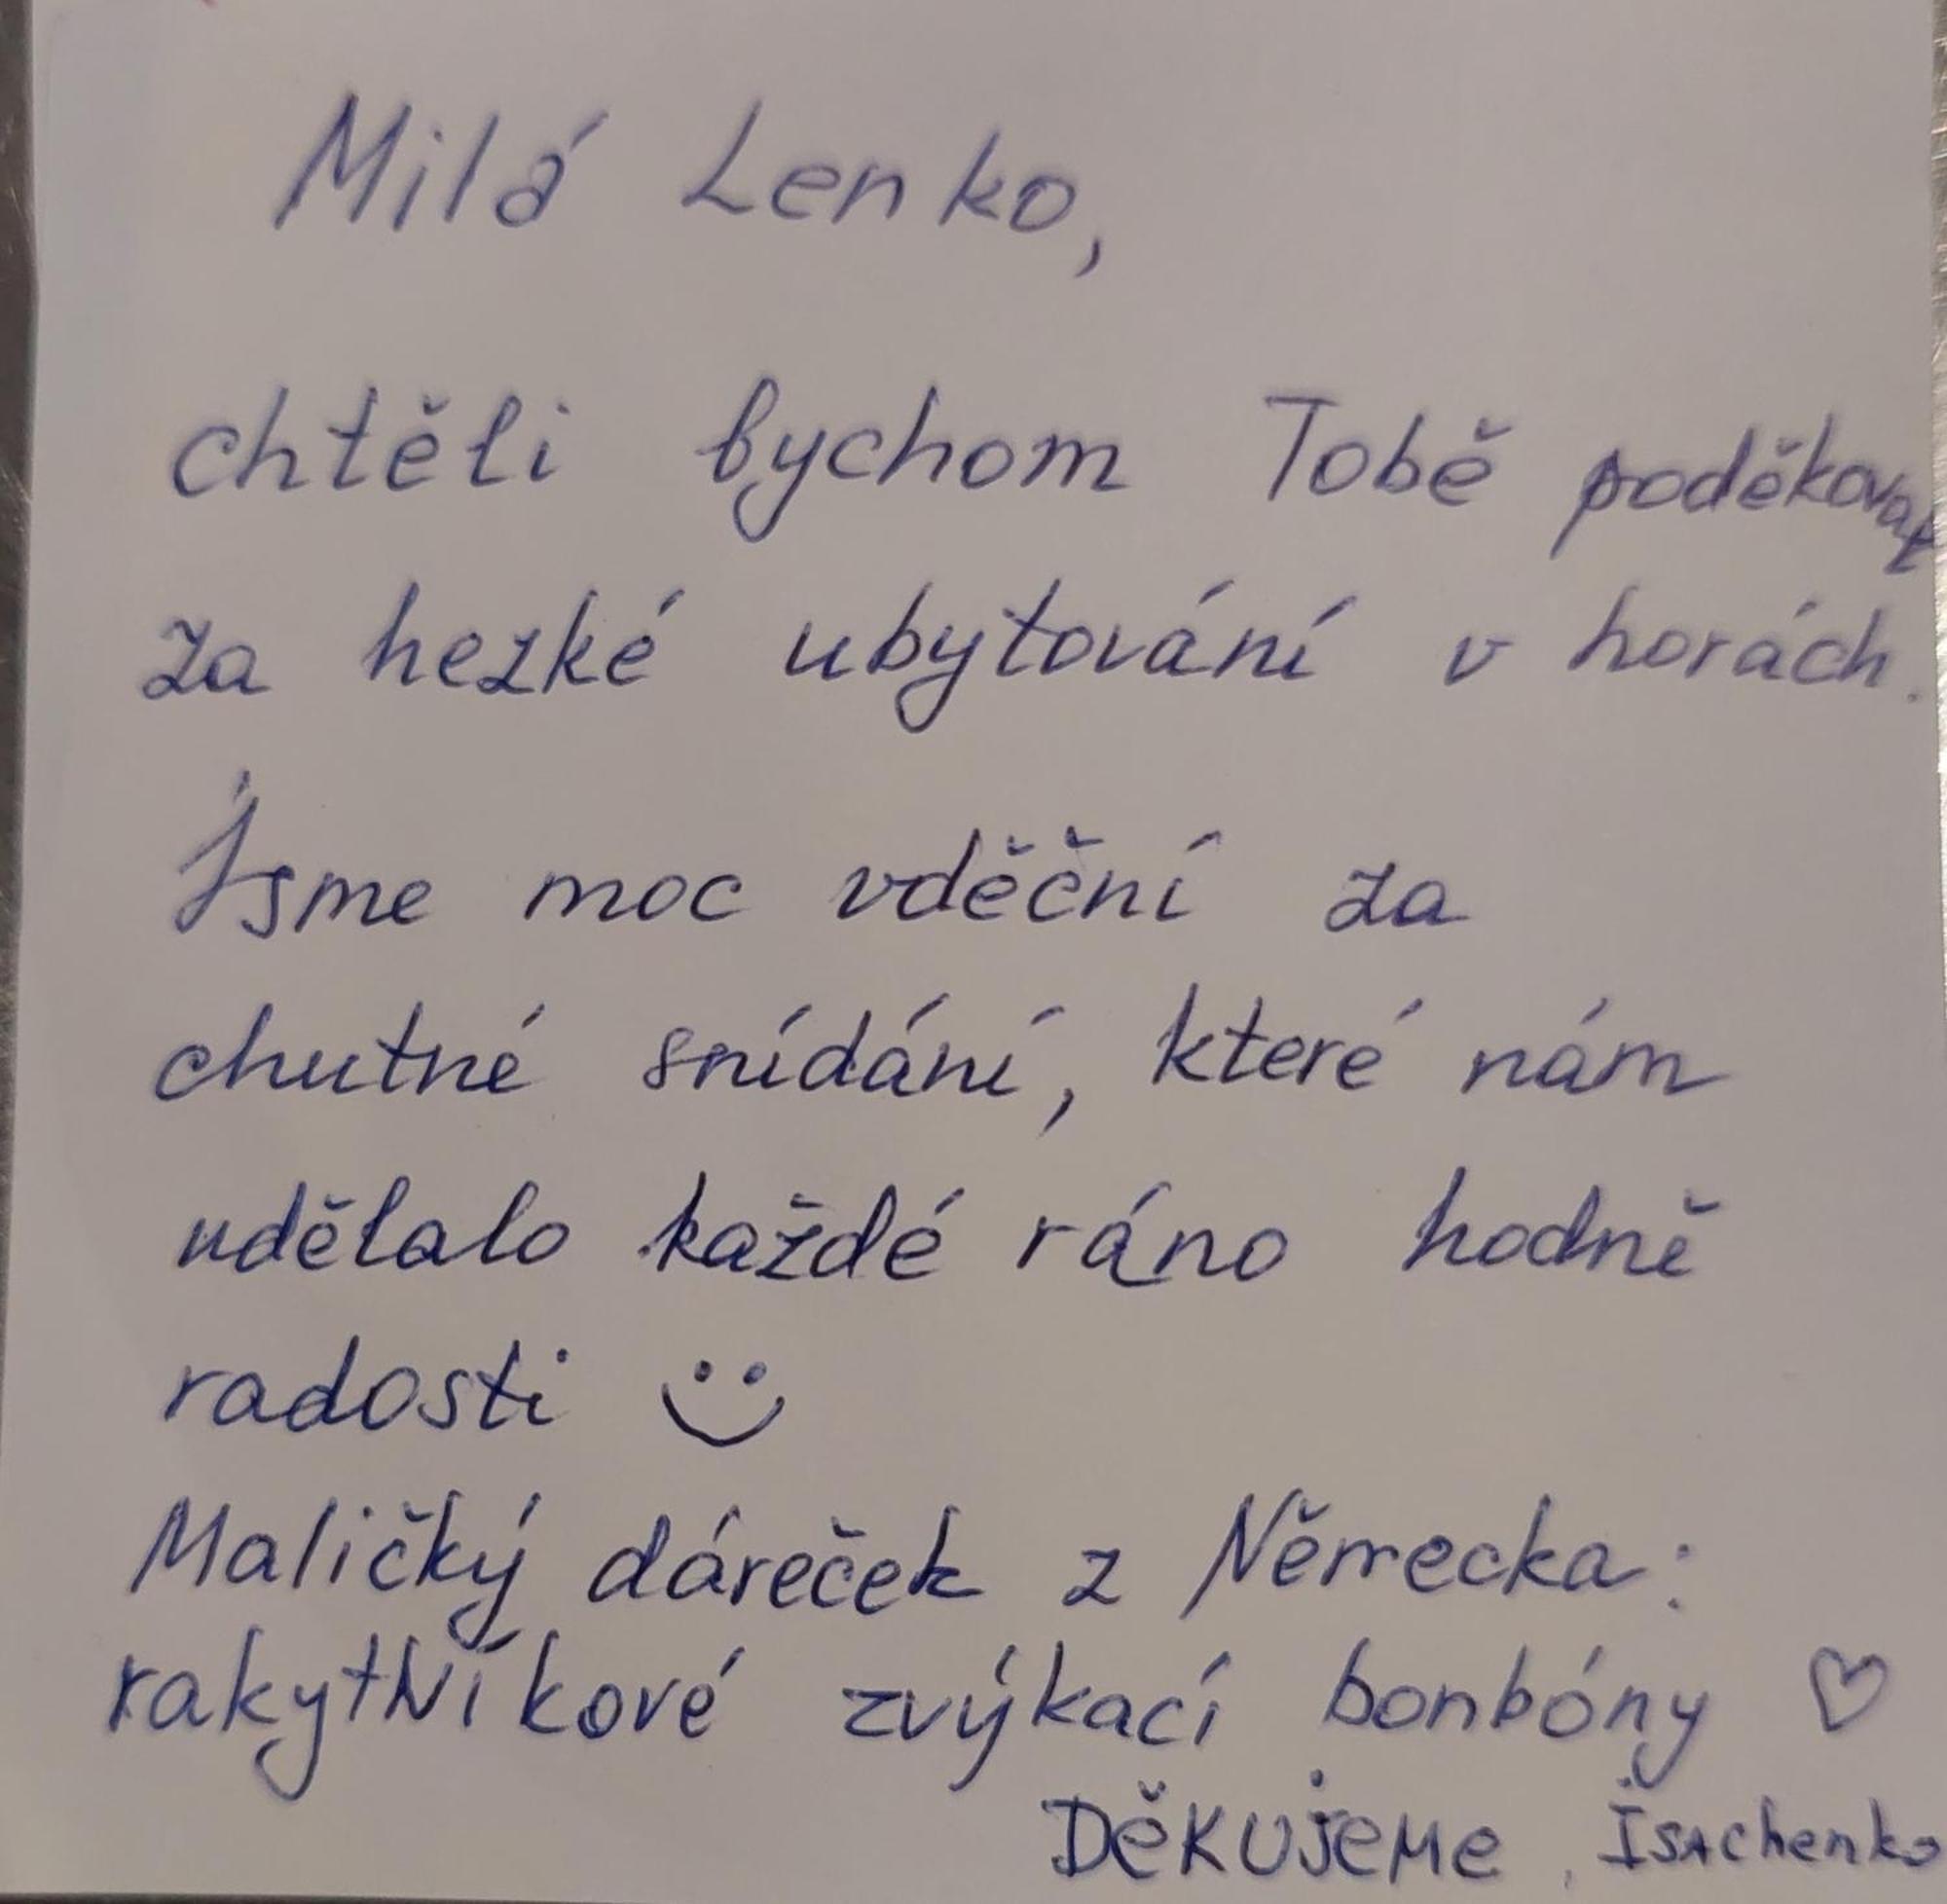 Milá Lenko,
chtěli bychom Tobě poděkovat
za hezké ubytování v horách.
Jsme moc vděční za
chutné snídání, které nám
udělalo každé ráno hodně
radosti
Maličký dáreček z Německa:
rakytNíkové zvýkací bonbóny
Děkujeme, Isachenko